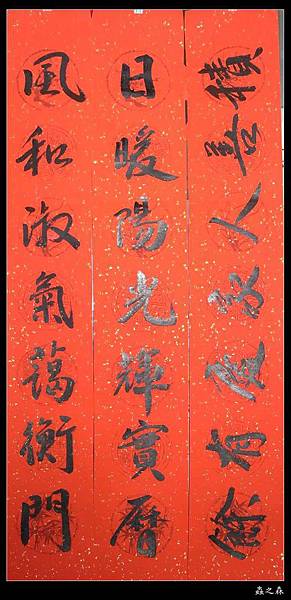 積善人家慶有餘
日暖陽光輝實曆
風和淑氣藹衡門
蟲之森